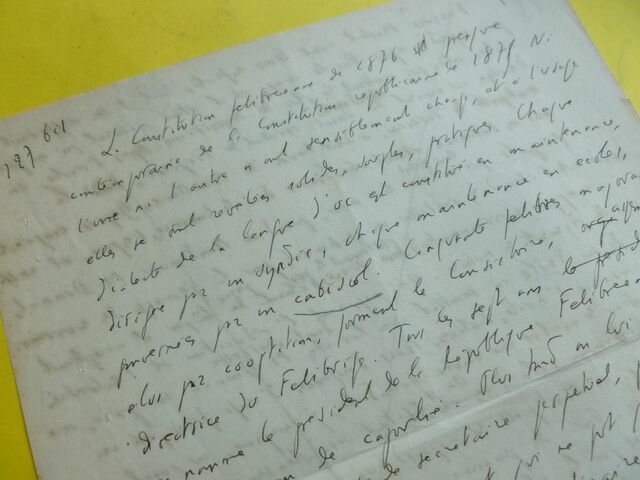 127 bis
La Constitution félibréenne de 1876 est presque
contemporaine de la Constitution républicaine de 1875. Ni
l'une ni l'autre n'ont sensiblement changé, et à l'usage
elles se sont révélées solides, souples, pratiques. Chaque
dialecte de la langue d'oc est constitué en maintenance,
dirigée par un syndic, chaque maintenance en écoles,
gouvernées par un cabiscol. Cinquante félibres majoraux
élus par cooptation, forment le Consistoire,
directrice du Félibrige. Tous les sept ans le
nomme le président de la République Félibréenne
de capoulié. Plus tard on lui
le secrétaire perpétuel,
qui ne put